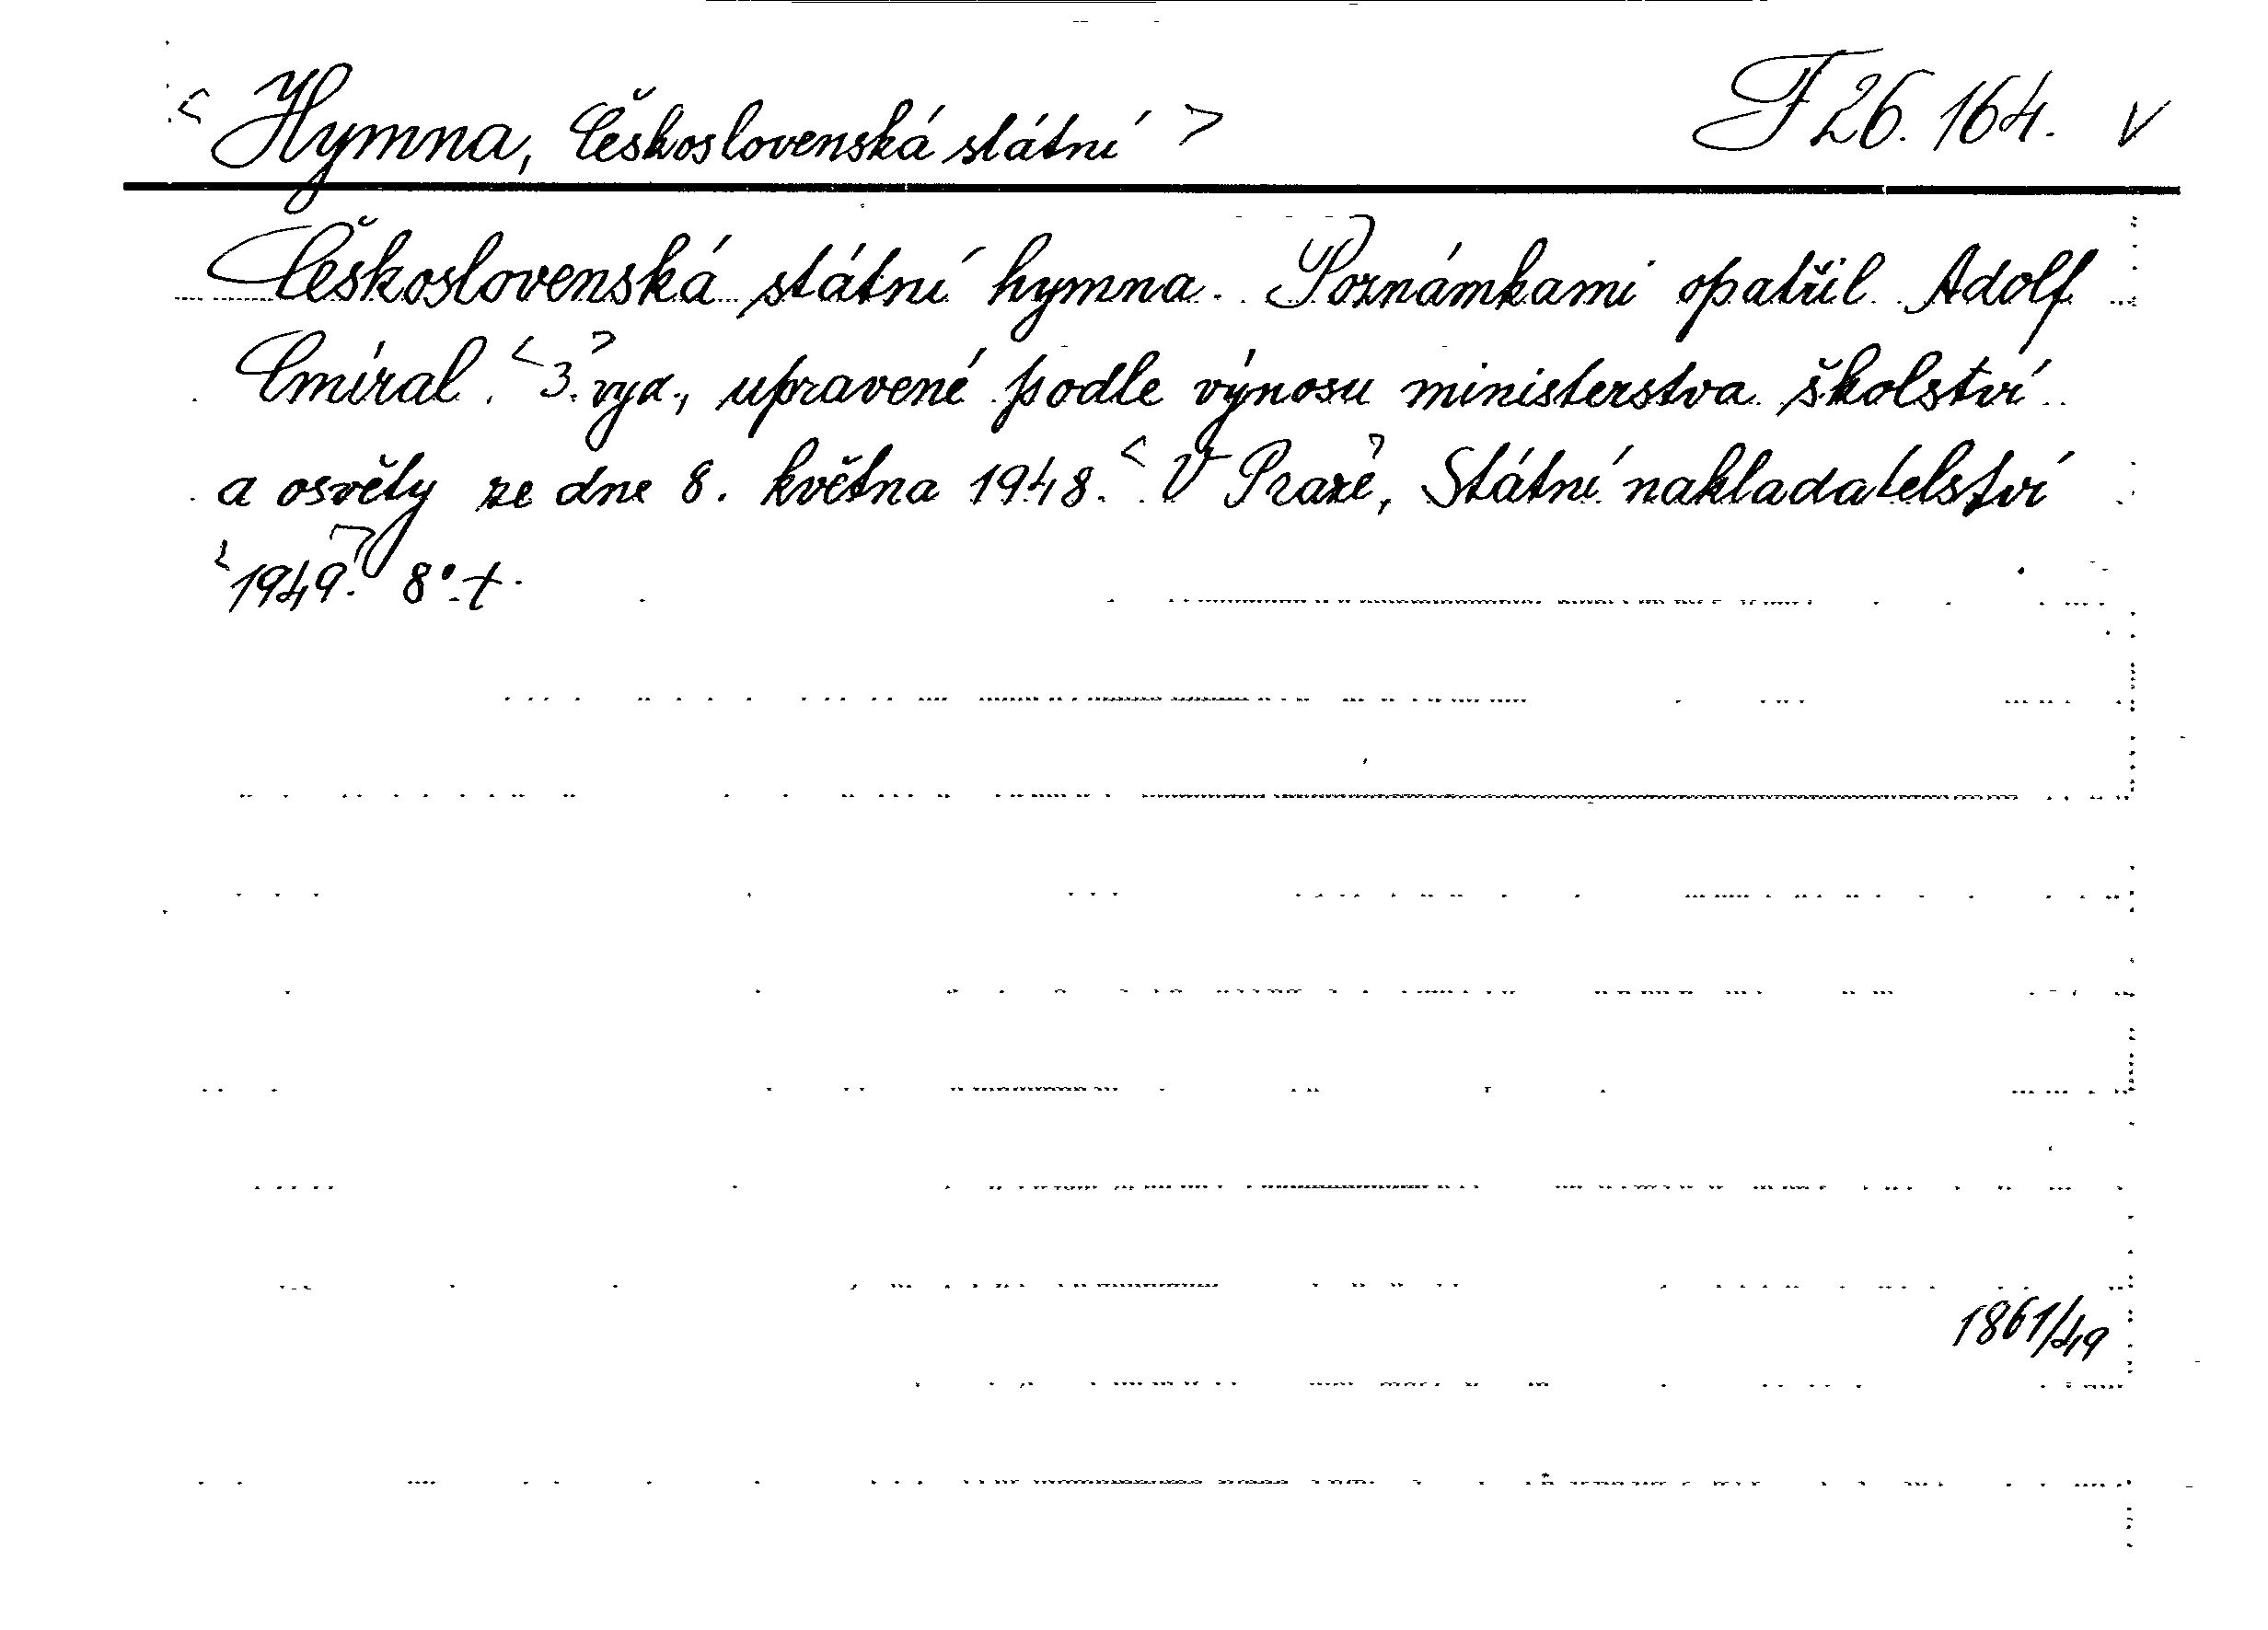 < Hymna, Československá státní > F 26.164. v
Československá státní hymna. Poznámkami opatřil Adolf
Cmíral. <3.> vyd., upravené podle výnosu ministerstva školství
a osvěty ze dne 8. května 1948. <V Praze>, Státní nakladatelství
<1949.> 8°. t.
1861/49